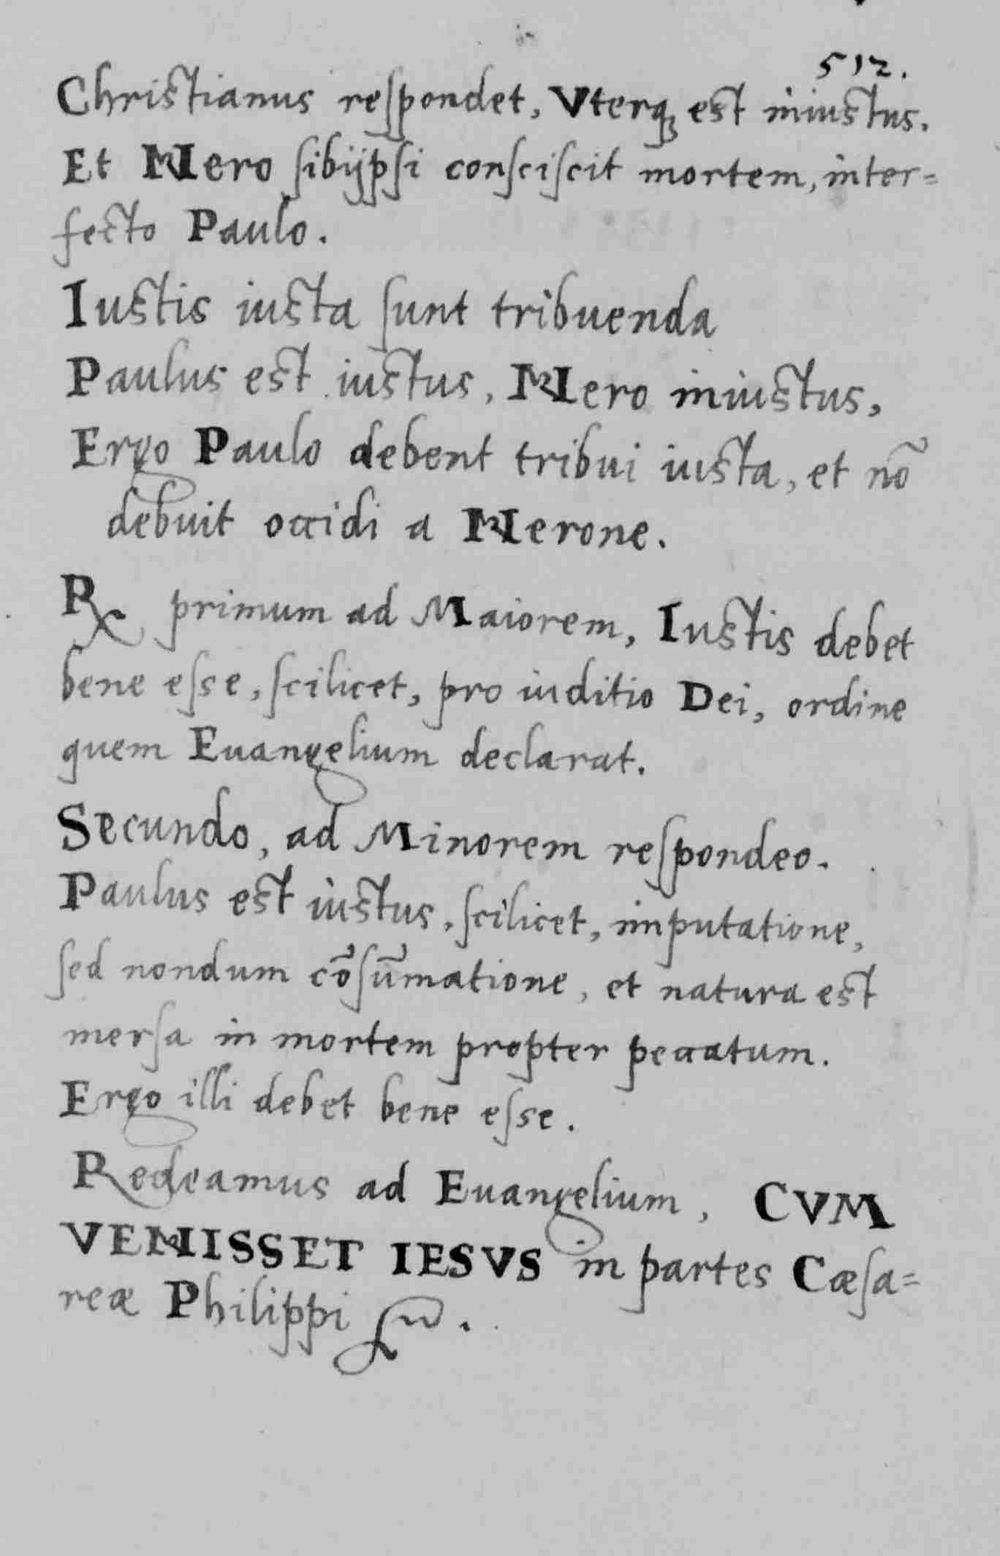 512.
Christianus reſpondet, Vterq; est iniustus.
Et Nero ſibijpſi conſciſcit mortem, inter=
fecto Paulo.
Iustis iusta ſunt tribuenda
Paulus est iustus, Nero iniustus,
Ergo Paulo debent tribui iusta, et nō
debuit occidi a Nerone.
℞ primum ad Maiorem, Iustis debet
bene eſse, ſcilicet, pro iuditio Dei, ordine
quem Euangelium declarat.
Secundo, ad Minorem reſpondeo.
Paulus est iustus, ſcilicet, imputatione,
ſed nondum cōſūmatione, et natura est
merſa in mortem propter peccatum.
Ergo illi debet bene eſse.
Redeamus ad Euangelium, CVM
VENISSET IESVS in partes Cæſa=
reæ Philippi